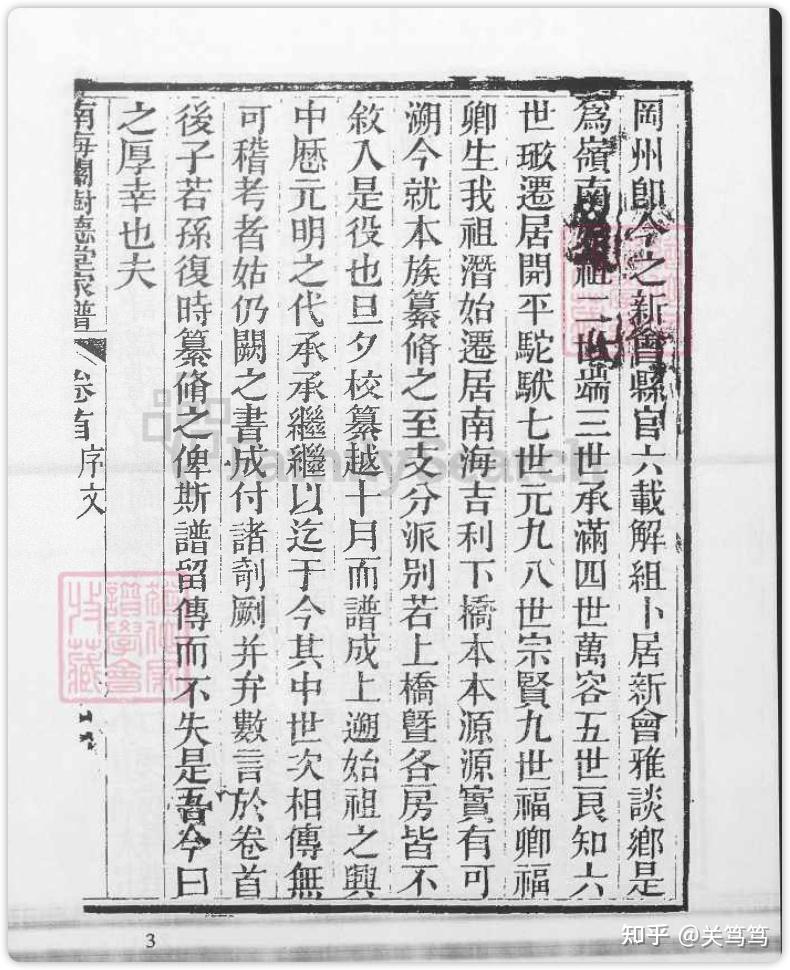 岡州即今之新會縣官六載解組卜居新會雅談鄉是
為嶺南祖二世端三世承滿四世萬容五世良知六
世璈遷居開平駝駙七世元九八世宗賢九世福卿福
卿生我祖潛始遷居南海吉利下橋本本源源實有可
溯今就本族纂脩之至支分派別若上橋曁各房皆不
敘入是役也旦夕校纂越十月而譜成上遡始祖之興
中歷元明之代承承繼繼以迄于今其中世次相傳無
可稽考者姑仍闕之書成付諸剞劂并弁數言於卷首
後子若孫復時纂脩之俾斯譜留傳而不失是吾今曰
之厚幸也夫
南海關樹德堂家譜
卷首
序文
譜學會
藏
FamilySearch
3
知乎 @关笃笃